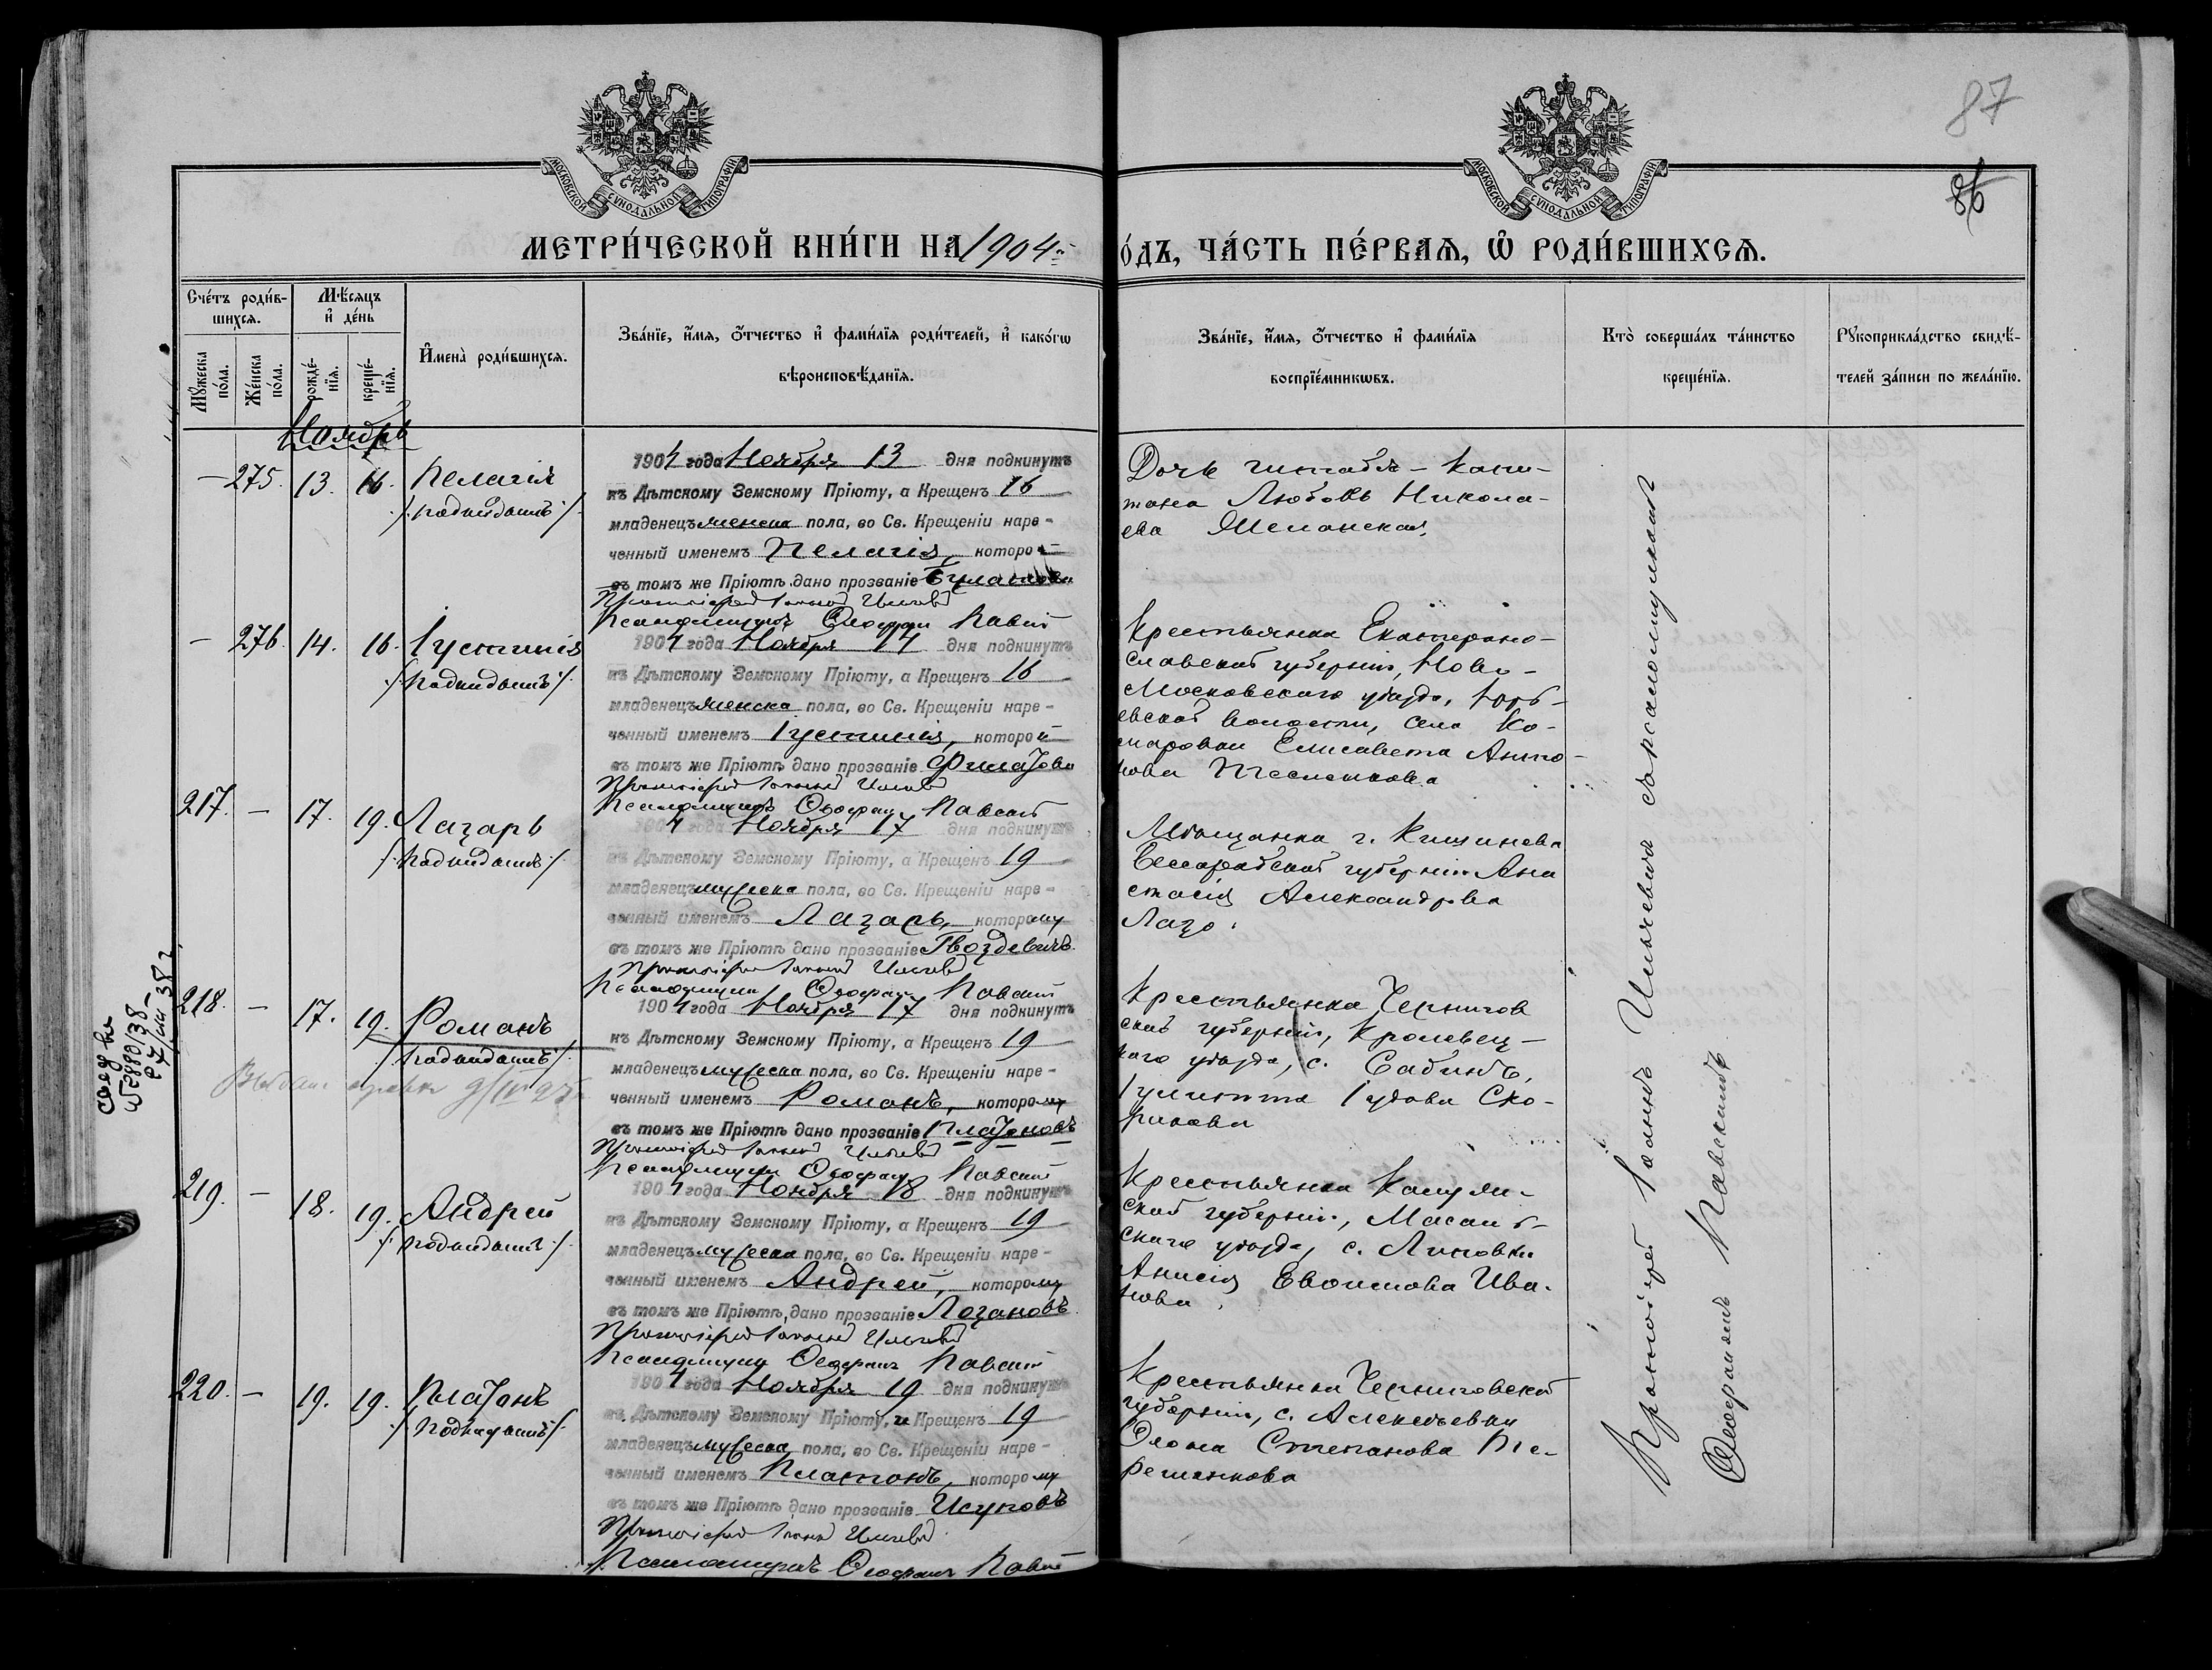 87
86
МОСКОВСКОЙ СѴНОДАЛЬНОЙ ТИПОГРАФІИ
МОСКОВСКОЙ СѴНОДАЛЬНОЙ ТИПОГРАФІИ
МЕТРИ́ЧЕСКОЙ КНИ́ГИ НА 1904
О́ДЪ, ЧА́СТЬ ПЕ́РВАѦ, Ѽ РОДИ́ВШИХСѦ.
Сче́тъ роди́в-
шихсѧ.
Мꙋ́жеска по́ла.
Же́нска по́ла.
Мѣ́сѧцъ
и҆ де́нь
рожде́-
нїѧ.
креще́-
нїѧ.
И҆мена̀ роди́вшихсѧ.
Зва́нїе, и҆́мѧ, ѻ҆́тчество и҆ фами́лїѧ роди́телей, и҆ како́гѡ
вѣроисповѣ́данїѧ.
Зва́нїе, и҆́мѧ, ѻ҆́тчество и҆ фами́лїѧ
воспрїе́мникѡвъ.
Кто̀ соверша́лъ та́инство
креще́нїѧ.
Рꙋкоприкла́дство свидѣ́-
телей за́писи по жела́нїю.
Ноябрь
— 275. 13. 16. Пелагія
/Подкидышъ/
1904 года Ноября 13 дня подкинутъ
къ Дѣтскому Земскому Пріюту, а Крещенъ 16
младенецъ женска пола, во Св. Крещеніи наре-
ченный именемъ Пелагія, которой
въ томъ же Пріютѣ дано прозваніе
Протоіерей Іоаннъ Ильчевъ
Псаломщикъ Ѳеофан Павскій
Дочь штабсъ-капи-
тана Любовь Никола-
ева
— 276. 14. 16. Іустинія
/Подкидышъ/
1904 года Ноября 14 дня подкинутъ
къ Дѣтскому Земскому Пріюту, а Крещенъ 16
младенецъ женска пола, во Св. Крещеніи наре-
ченный именемъ Іустинія, которой
въ томъ же Пріютѣ дано прозваніе Филатова
Протоіерей Іоаннъ Ильчевъ
Псаломщикъ Ѳеофан Павскій
Крестьянка Екатерино-
славской губерніи, Ново-
Московскаго уѣзда,
волости, села Ко-
Елисавета Анто-
нова
217. — 17. 19. Лазарь
/Подкидышъ/
1904 года Ноября 17 дня подкинутъ
къ Дѣтскому Земскому Пріюту, а Крещенъ 19
младенецъ мужеска пола, во Св. Крещеніи наре-
ченный именемъ Лазарь, которому
въ томъ же Пріютѣ дано прозваніе Гвоздевичъ.
Протоіерей Іоаннъ Ильчевъ
Псаломщикъ Ѳеофан Павскій
Мѣщанка г. Кишинева
Бессарабской губерніи Ана
стасія Александрова
Лазо.
218. — 17. 19. Романъ
/Подкидышъ/
1904 года Ноября 17 дня подкинутъ
къ Дѣтскому Земскому Пріюту, а Крещенъ 19
младенецъ мужеска пола, во Св. Крещеніи наре-
ченный именемъ Романъ, которому
въ томъ же Пріютѣ дано прозваніе Платоновъ
Протоіерей Іоаннъ Ильчевъ
Псаломщикъ Ѳеофан Павскій
Крестьянка Чернигов
ской губерніи, Кролевец-
каго уѣзда, с.
219. — 18. 19. Андрей
/Подкидышъ/
1904 года Ноября 18 дня подкинутъ
къ Дѣтскому Земскому Пріюту, а Крещенъ 19
младенецъ мужеска пола, во Св. Крещеніи наре-
ченный именемъ Андрей, которому
въ томъ же Пріютѣ, дано прозваніе Лозановъ
Протоіерей Іоаннъ Ильчевъ
Псаломщикъ Ѳеофанъ Павскій
Крестьянка Калуж-
ской губерніи,
скаго уѣзда, с. Липовки
Анисія Ива-
нова.
220. — 19. 19. Платонъ
/Подкидышъ/
1904 года Ноября 19 дня подкинутъ
къ Дѣтскому Земскому Пріюту, а Крещенъ 19
младенецъ мужеска пола, во Св. Крещеніи наре-
ченный именемъ Платонъ, которому
въ томъ же Пріютѣ дано прозваніе Исуповъ
Протоіерей Іоаннъ Ильчевъ
Псаломщикъ Ѳеофанъ Павскій
Крестьянка Черниговской
губерніи, с. Алексѣевки
Степанова
Протоіерей Іоаннъ Ильчевъ съ псаломщикомъ
Ѳеофаномъ Павскимъ